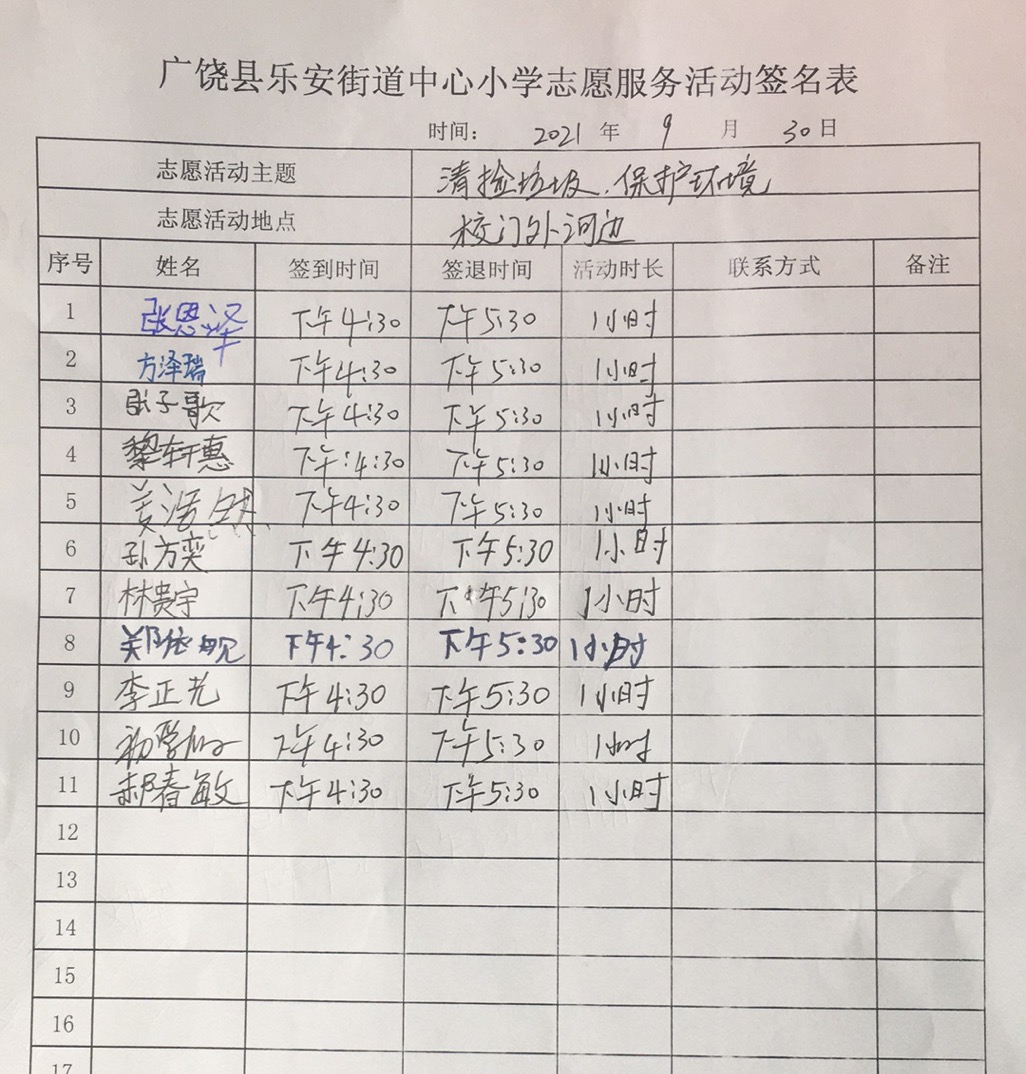 广饶县乐安街道中心小学志愿服务活动签名表
时间： 2021 年 9 月 30 日
志愿活动主题 清捡垃圾、保护环境
志愿活动地点 校门外河边
序号 姓名 签到时间 签退时间 活动时长 联系方式 备注
1 张恩泽 下午4:30 下午5:30 1小时
2 方泽瑞 下午4:30 下午5:30 1小时
3 张子歌 下午4:30 下午5:30 1小时
4 黎轩惠 下午:4:30 下午5:30 1小时
5 姜浩 下午4:30 下午5:30 1小时
6 孙方奕 下午4:30 下午5:30 1小时
7 林贵宇 下午4:30 下午5:30 1小时
8 郑依 下午4:30 下午5:30 1小时
9 李正艺 下午4:30 下午5:30 1小时
10 下午4:30 下午5:30 1小时
11 郝春敏 下午4:30 下午5:30 1小时
12
13
14
15
16
17